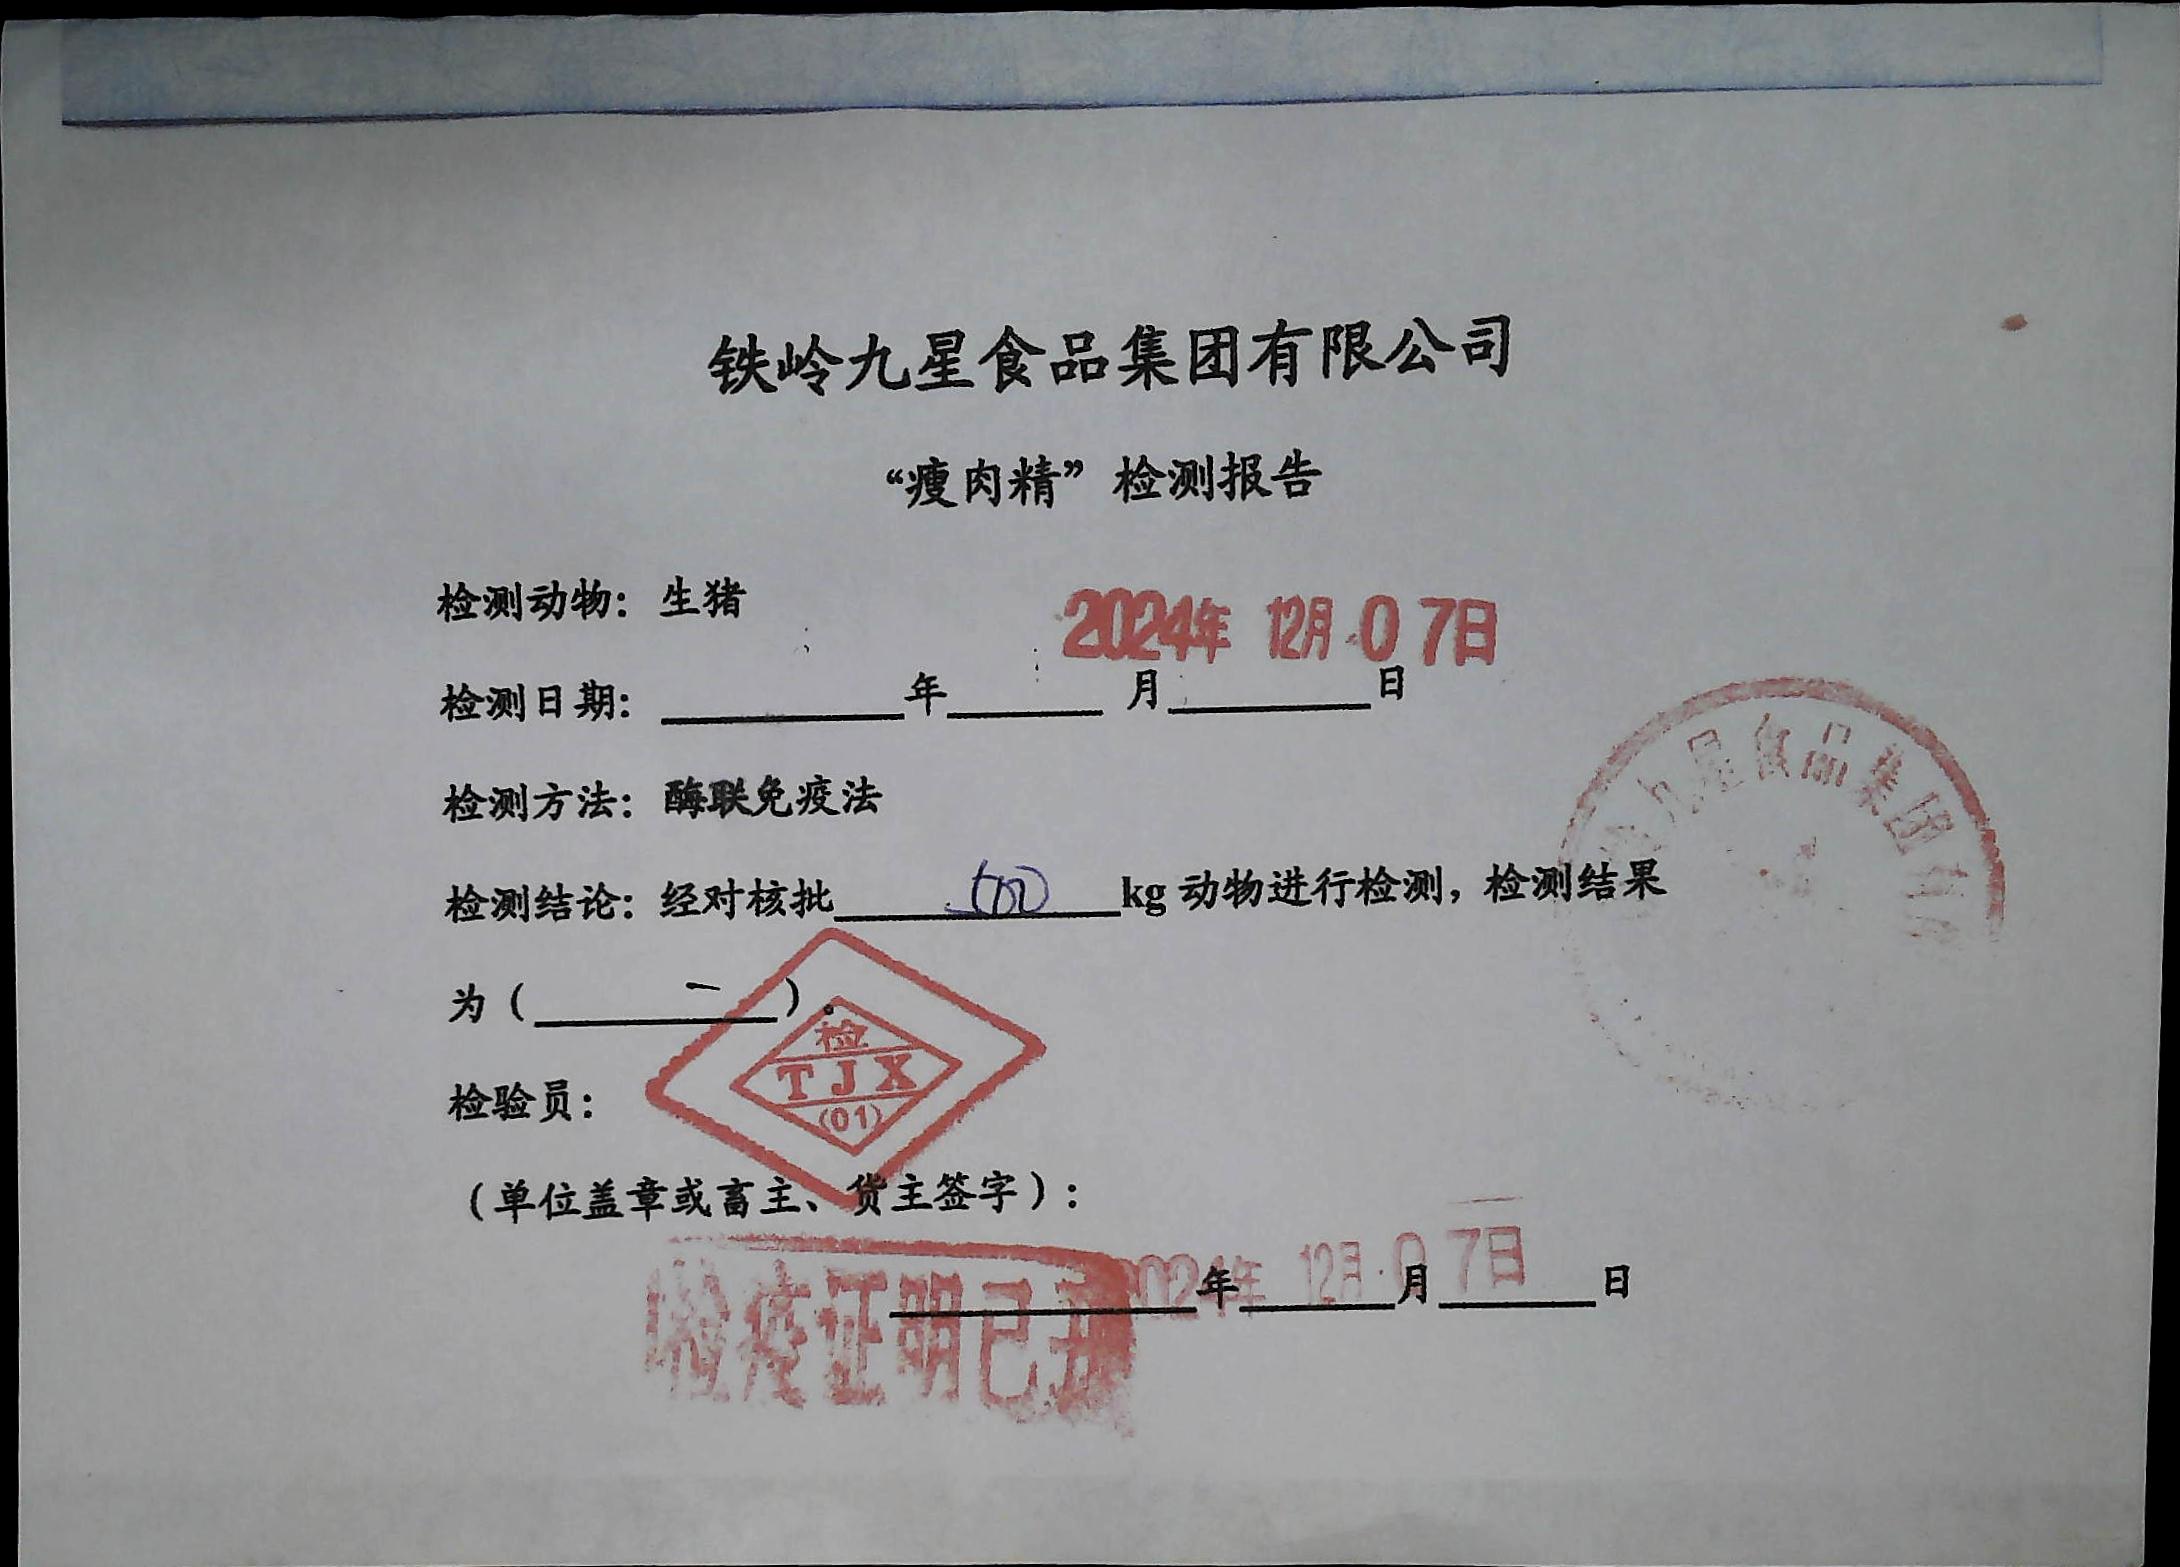 铁岭九星食品集团有限公司
“瘦肉精”检测报告
检测动物：生猪
2024年 12月 07日
检测日期：________年______月______日
检测方法：酶联免疫法
检测结论：经对核批 500 kg 动物进行检测，检测结果
为（ 一 ）。
检
TJX
(01)
检验员：
（单位盖章或畜主、货主签字）：
2024年 12月 07日
年 月 日
检疫证明已开
九星食品集团有